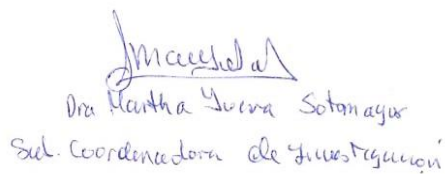 Dra Martha Sotomayor
Sub. Coordenadora de Investigación